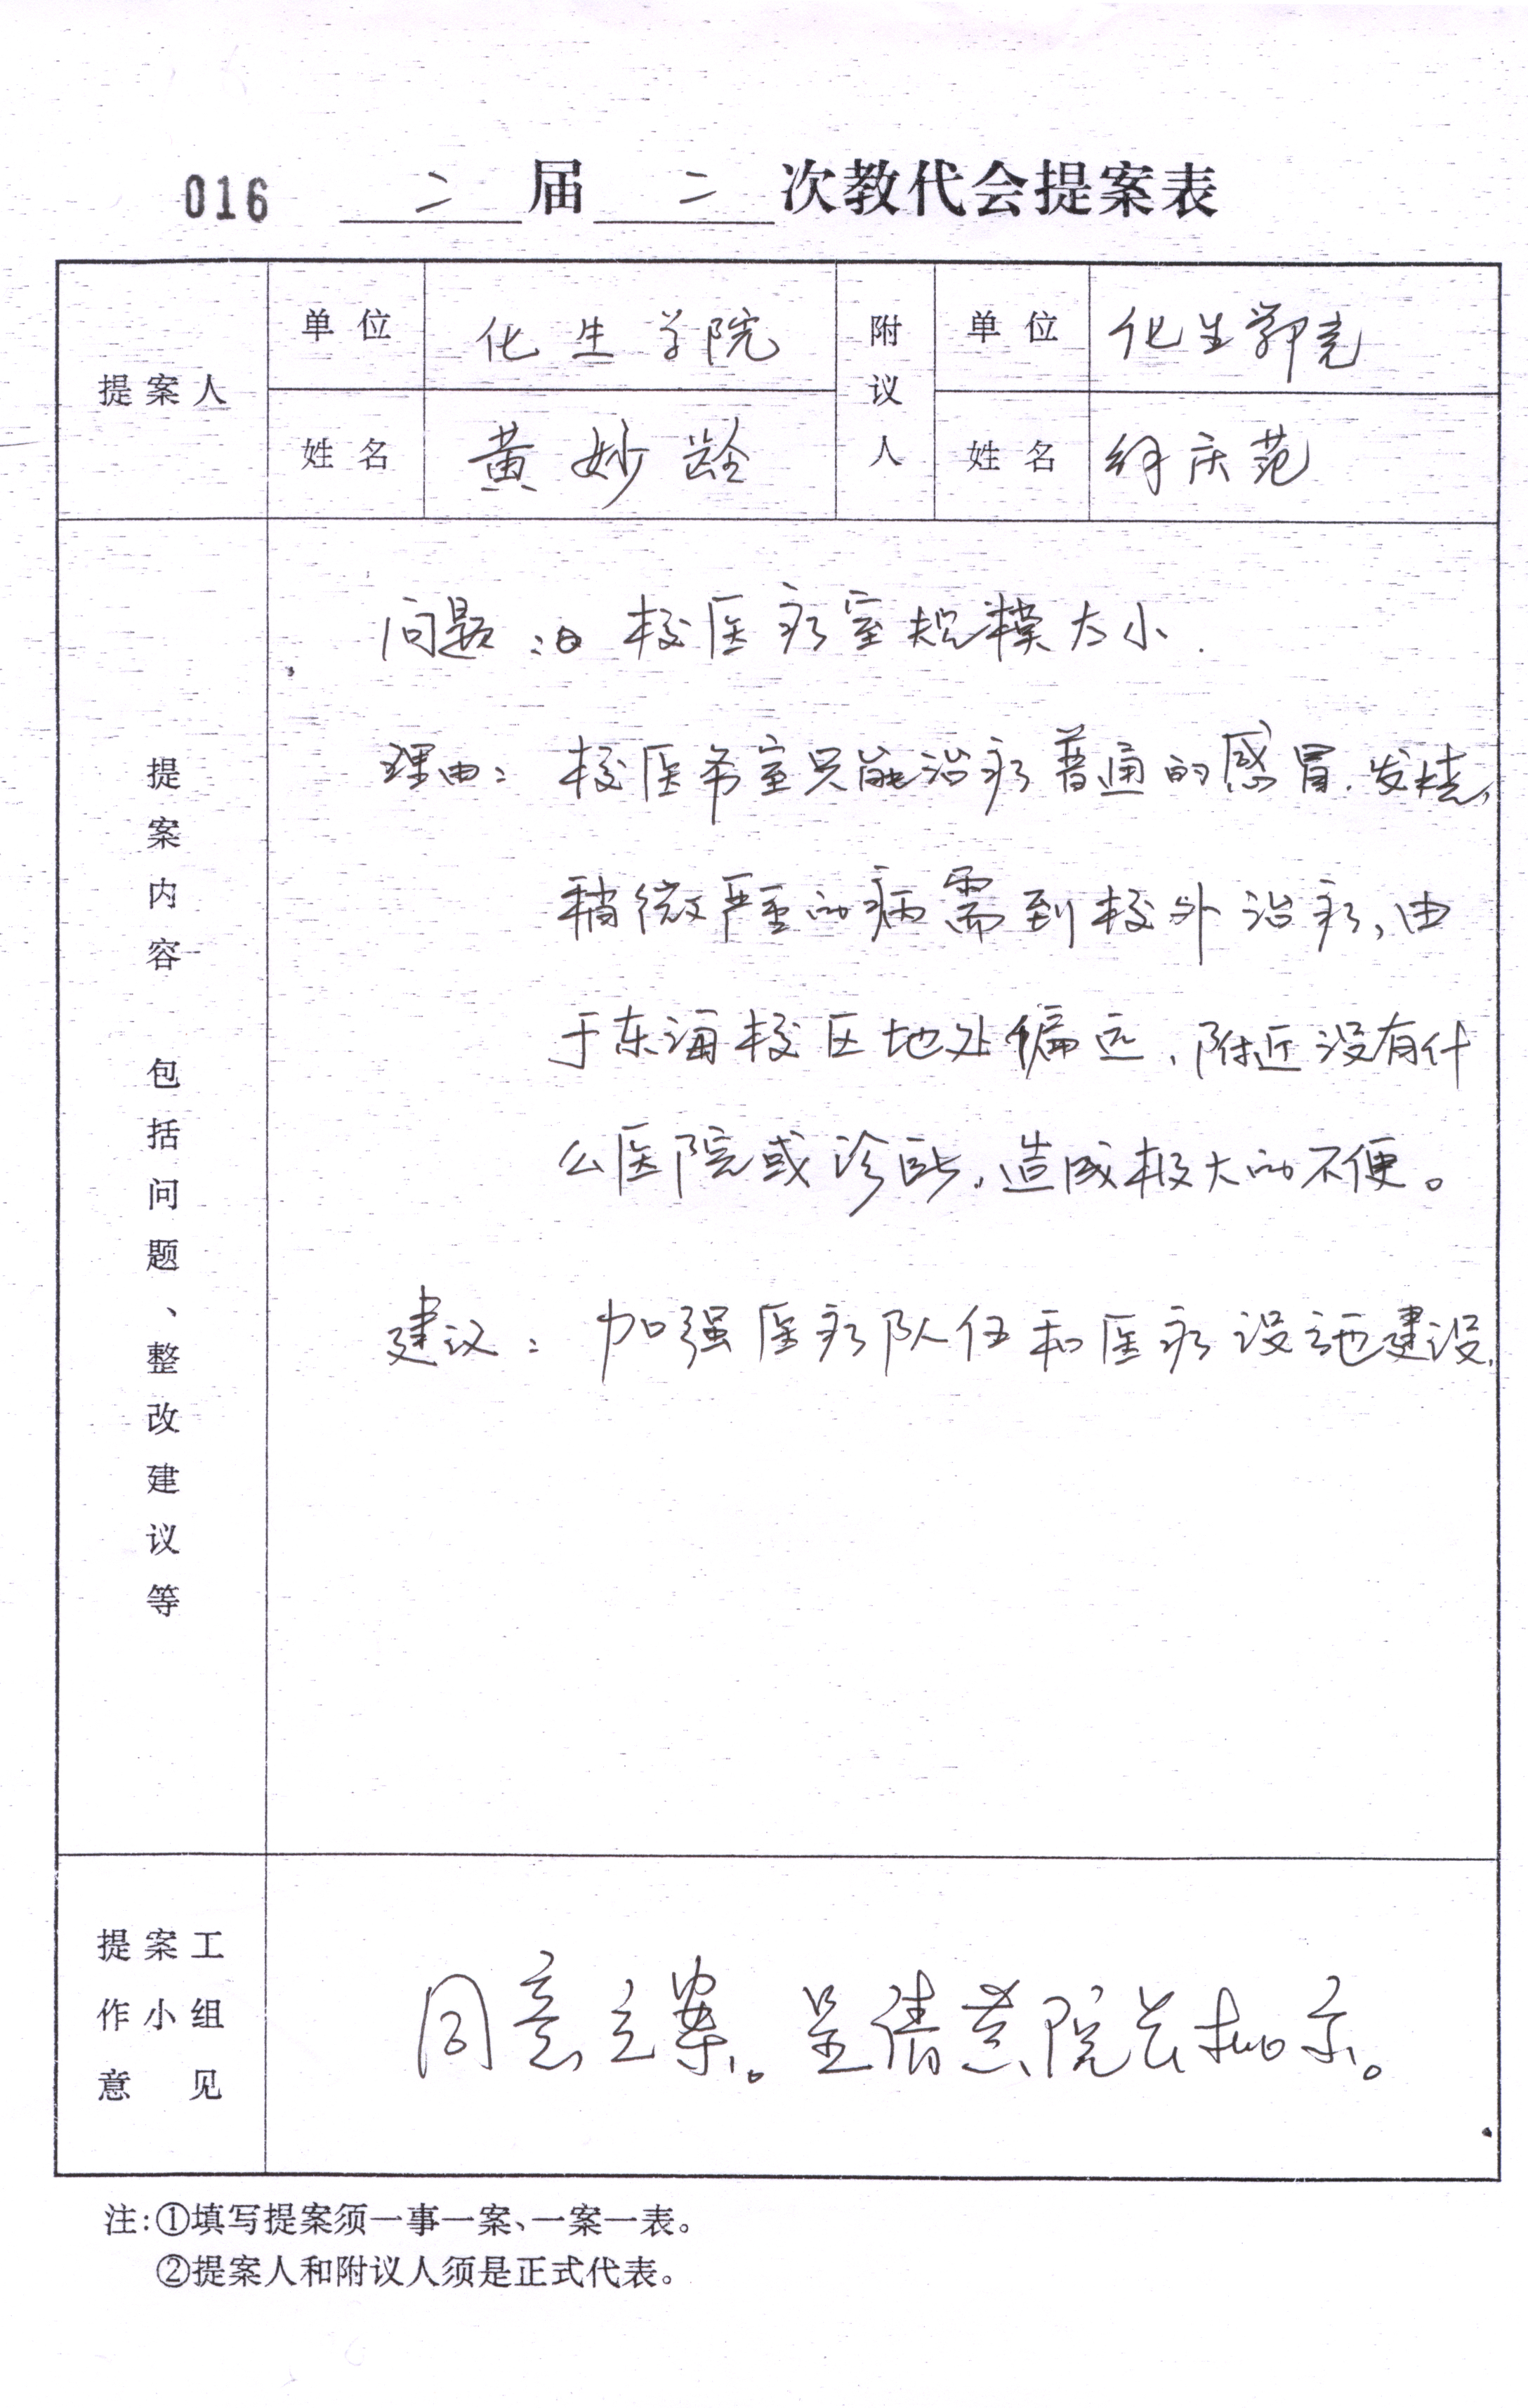 016 二届二次教代会提案表
提案人
单位 化生学院
姓名 黄妙龄
附议人
单位 化生学院
姓名 庆范
提案内容 包括问题、整改建议等
问题: 校医疗室规模太小.
理由: 校医务室只能治疗普通的感冒.发烧,
稍微严重的病需到校外治疗,由
于东海校区地处偏远,附近没有什
么医院或诊所,造成极大的不便。
建议: 加强医疗队伍和医疗设施建设.
提案工作小组意见
同意立案。呈请黄院长批示。
注:①填写提案须一事一案、一案一表。
②提案人和附议人须是正式代表。